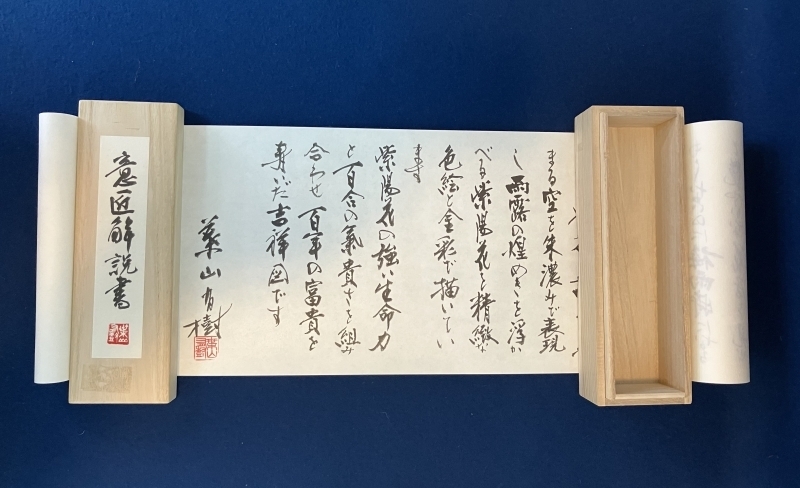 まる空を朱濃みで表現
し雨露の煌めきを浮か
べる紫陽花を精緻な
色絵と金彩で描いてい
ます
紫陽花の強い生命力
と百合の氣貴さを組み
合わせ百年の富貴を
寿いだ吉祥図です
葉山有樹
意匠解説書